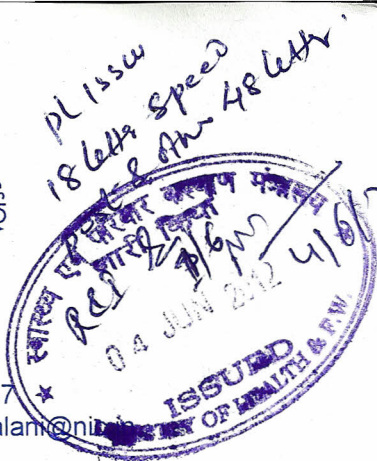 pl issue
18 letter speed
post & other 48 letter
स्वास्थ्य एवं परिवार कल्याण मंत्रालय
R & I
04 JUN 2012
4/6/
ISSUED
MINISTRY OF HEALTH & F.W.
7
alani@ni